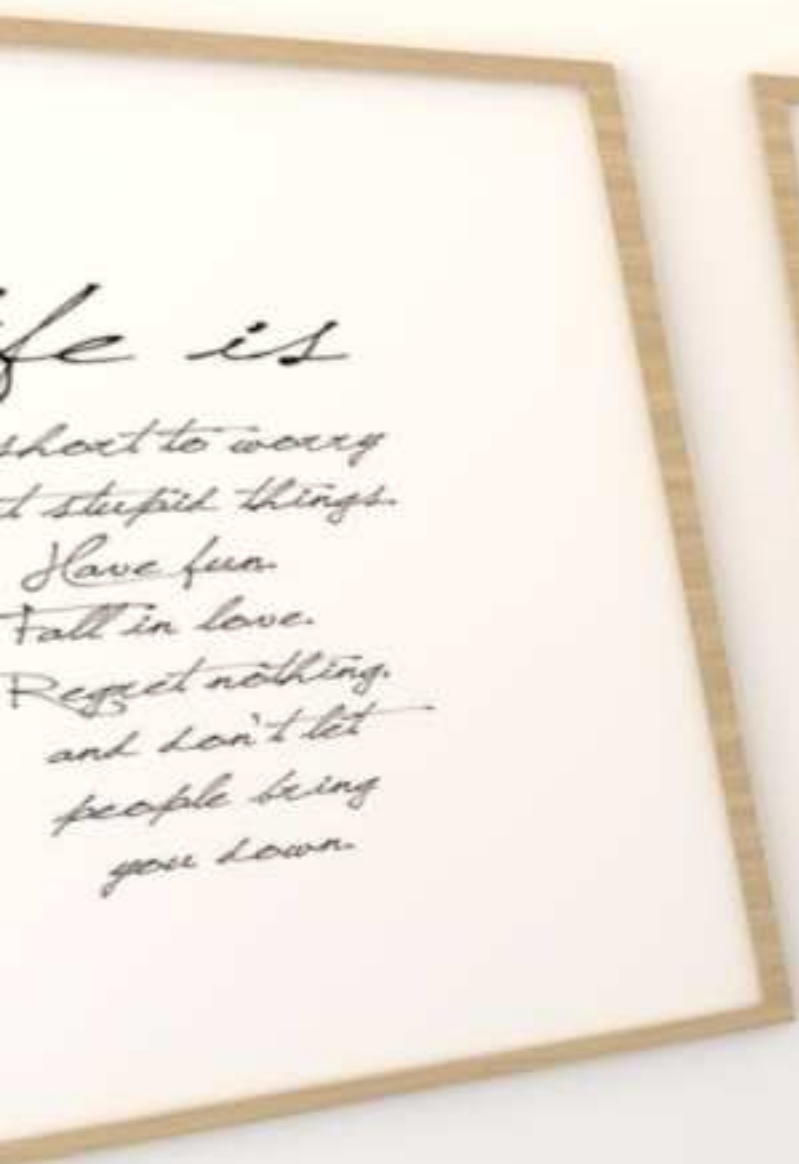 ife is
short to worry
t stupid things.
Have fun.
Fall in love.
Regret nothing.
and don't let
people bring
you down.